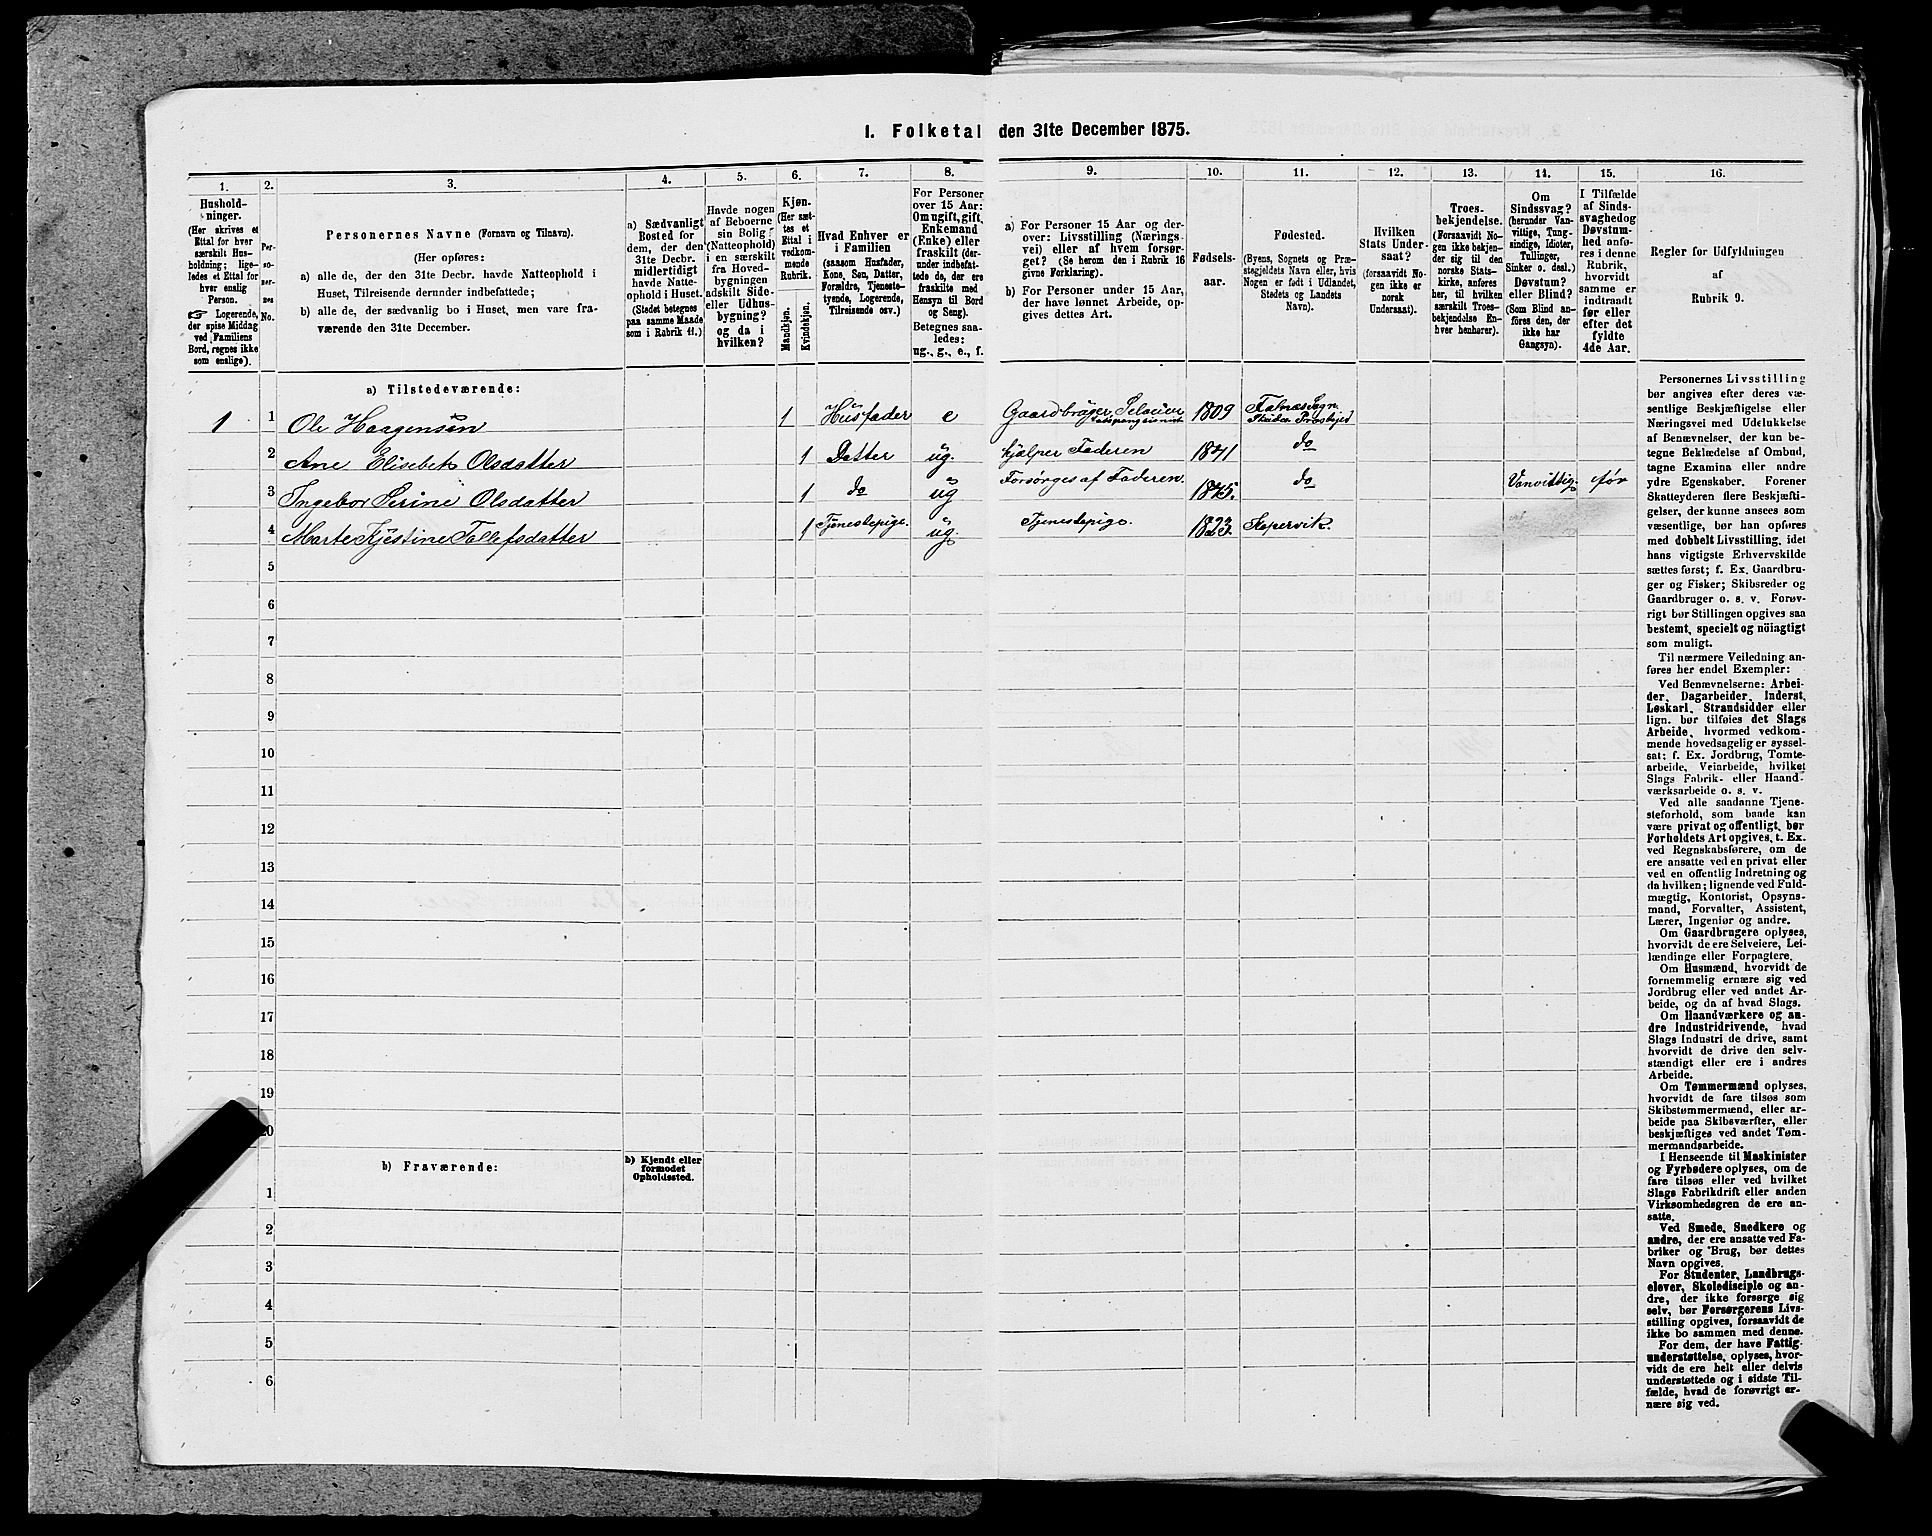 1. Folketal den 31te December 1875.
1.
2.
3.
4.
5.
6.
7.
8.
9.
10.
11.
12.
13.
14.
15.
16.
Hushold-
ninger.
(Her skrives et
Ettal for hver
særskilt Hus-
holdning; lige-
ledes et Ettal for
hver enslig
Person.
☞ Logerende,
der spise Middag
ved Familiens
Bord, regnes ikke
som enslige).
Per-
so-
ner-
nes
No.
Personernes Navne (Fornavn og Tilnavn).
(Her opføres:
a) alle de, der den 31te Decbr. havde Natteophold i
Huset, Tilreisende derunder indbefattede;
b) alle de, der sædvanlig bo i Huset, men vare fra-
værende den 31te December.
a) Sædvanligt
Bosted for
dem, der den
31te Decbr.
midlertidigt
havde Natte-
ophold i Huset.
(Stedet betegnes
paa samme Maade
som i Rubrik 11.)
Havde nogen
af Beboerne
sin Bolig
(Natteophold)
i en særskilt
fra Hoved-
bygningen
adskilt Side-
eller Udhus-
bygning?
og da i
hvilken?
Kjøn.
(Her sæt-
tes et
Ettal i
vedkom-
mende
Rubrik.
Mandkjøn.
Kvindekjøn.
Hvad Enhver er
i Familien
(saasom Husfader,
Kone, Søn, Datter,
Forældre, Tjeneste-
tyende, Logerende,
Tilreisende osv.)
For Personer
over 15 Aar:
Om ugift, gift,
Enkemand
(Enke) eller
fraskilt (der-
under indbefat-
tede de, der ere
fraskilte med
Hensyn til Bord
og Seng).
Betegnes saa-
ledes:
ug., g., e., f.
a) For Personer 15 Aar og der-
over: Livsstilling (Nærings-
vei) eller af hvem forsør-
get? (Se herom den i Rubrik 16
givne Forklaring).
b) For Personer under 15 Aar,
der have lønnet Arbeide, op-
gives dettes Art.
Fødsels-
aar.
Fødested.
(Byens, Sognets og Præ-
stegjeldets Navn eller, hvis
Nogen er født i Udlandet,
Stedets og Landets
Navn).
Hvilken
Stats Under-
saat?
(forsaavidt No-
gen ikke er
norsk
Undersaat).
Troes-
bekjendelse.
(Forsaavidt No-
gen ikke bekjen-
der sig til den
norske Stats-
kirke, anføres
her, til hvilken
særskilt Troes-
bekjendelse En-
hver henhører).
Om
Sindssvag?
(herunder Van-
vittige, Tung-
sindige, Idioter,
Tullinger,
Sinker o. desl.)
Døvstum?
eller Blind?
(Som Blind an-
føres den, der
ikke har
Gangsyn).
I Tilfælde
af Sinds-
svaghed og
Døvstum-
hed anfø-
res i denne
Rubrik,
hvorvidt
samme er
indtraadt
før eller
efter det
fyldte
4de Aar.
Regler for Udfyldningen
af
Rubrik 9.
a) Tilstedeværende:
1 1 Ole Haagensen 1 Husfader e Gaardbruger, Selveier 1809 Falnes Sogn Skudes Præstegjed
2 Ane Elisebet Olsdatter 1 Datter ug. hjælper Faderen 1841 do
3 Ingebor Serine Olsdatter 1 do ug Forsørges af Faderen 1845. do Vanvittig. før
4 Marte Kjestine Tollefsdatter 1 Tjenestepige. ug. Tjenestepige. Kopervik.
5
6
7
8
9
10
11
12
13
14
15
16
17
18
19
20
b) Fraværende:
b) Kjendt eller
formodet
Opholdssted.
1
2
3
4
5
6
Personernes Livsstilling
bør angives efter deres væ-
sentlige Beskjæftigelse eller
Næringsvei med Udelukkelse
af Benævnelser, der kun be-
tegne Beklædelse af Ombud,
tagne Examina eller andre
ydre Egenskaber. Forener
Skatteyderen flere Beskjæfti-
gelser, der kunne ansees som
væsentlige, bør han opføres
med dobbelt Livsstilling, idet
hans vigtigste Erhvervskilde
sættes først; f. Ex. Gaardbru-
ger og Fisker; Skibsreder og
Gaardbruger o. s. v. Forøv-
rigt bør Stillingen opgives saa
bestemt, specielt og nöiagtigt
som muligt.
Til nærmere Veiledning an-
føres her endel Exempler:
Ved Benævnelserne: Arbei-
der, Dagarbeider, Inderst,
Løskarl, Strandsidder eller
lign. bør tilføies det Slags
Arbeide, hvormed vedkom-
mende hovedsagelig er syssel-
sat; f. Ex. Jordbrug, Tomte-
arbeide, Veiarbeide, hvilket
Slags Fabrik- eller Haand-
værksarbeide o. s. v.
Ved alle saadanne Tjene-
steforhold, som baade kan
være privat og offentligt, bør
Forholdets Art opgives, t. Ex.
ved Regnskabsførere, om de
ere ansatte ved en privat eller
ved en offentlig Indretning og
da hvilken; lignende ved Fuld-
mægtig, Kontorist, Opsyns-
mand, Forvalter, Assistent,
Lærer, Ingeniør og andre.
Om Gaardbrugere oplyses,
hvorvidt de ere Selveiere, Lei-
lændinge eller Forpagtere.
Om Husmænd, hvorvidt de
fornemmelig ernære sig ved
Jordbrug eller ved andet Ar-
beide, og da af hvad Slags.
Om Haandværkere og an-
dre Industridrivende, hvad
Slags Industri de drive, samt
hvorvidt de drive den selv-
stændigt eller ere i andres
Arbeide.
Om Tømmermænd oplyses,
hvorvidt de fare tilsøs som
Skibstømmermænd, eller ar-
beide paa Skibsværfter, eller
beskjæftiges ved andet Tøm-
mermandsarbeide.
I Henseende til Maskinister
og Fyrbødere oplyses, om de
fare tilsøs eller ved hvilket
Slags Fabrikdrift eller anden
Virksomhedsgren de ere an-
satte.
Ved Smede, Snedkere og
andre, der ere ansatte ved Fa-
briker og Brug, bør dettes
Navn opgives.
For Studenter, Landbrugs-
elever, Skoledisciple og an-
dre, der ikke forsørge sig
selv, bør Forsørgerens Livs-
stilling opgives, forsaavidt de
ikke bo sammen med denne.
For dem, der have Fattig-
understøttelse, oplyses, hvor-
vidt de ere helt eller delvis
understøttede og i sidste Til-
fælde, hvad de forøvrigt er-
nære sig ved.